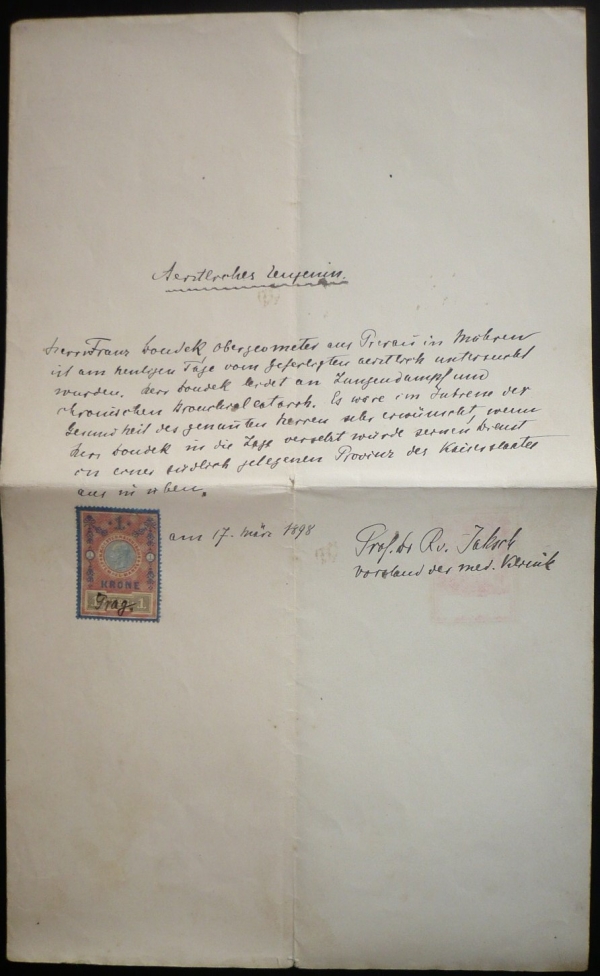 Aerztliches Zeugniss.
Herr Franz Doudek Obergeometer aus Prerau in Mähren
ist am heutigen Tage vom Gefertigten aerztlich untersucht
worden. Herr Doudek leidet an Lungendampf und
chronischen Bronchialcatarrh. Es wäre im Interesse der
Gesundheit des genannten Herren sehr erwünscht, wenn
Herr Doudek in die Lage versetzt würde seinen Dienst
in einer südlich gelegenen Provinz des Kaiserstaates
aus zu üben.
1
KRONE
1
Prag,
am 17. März 1898
Prof. Dr R. v. Jaksch
Vorstand der med. Klinik